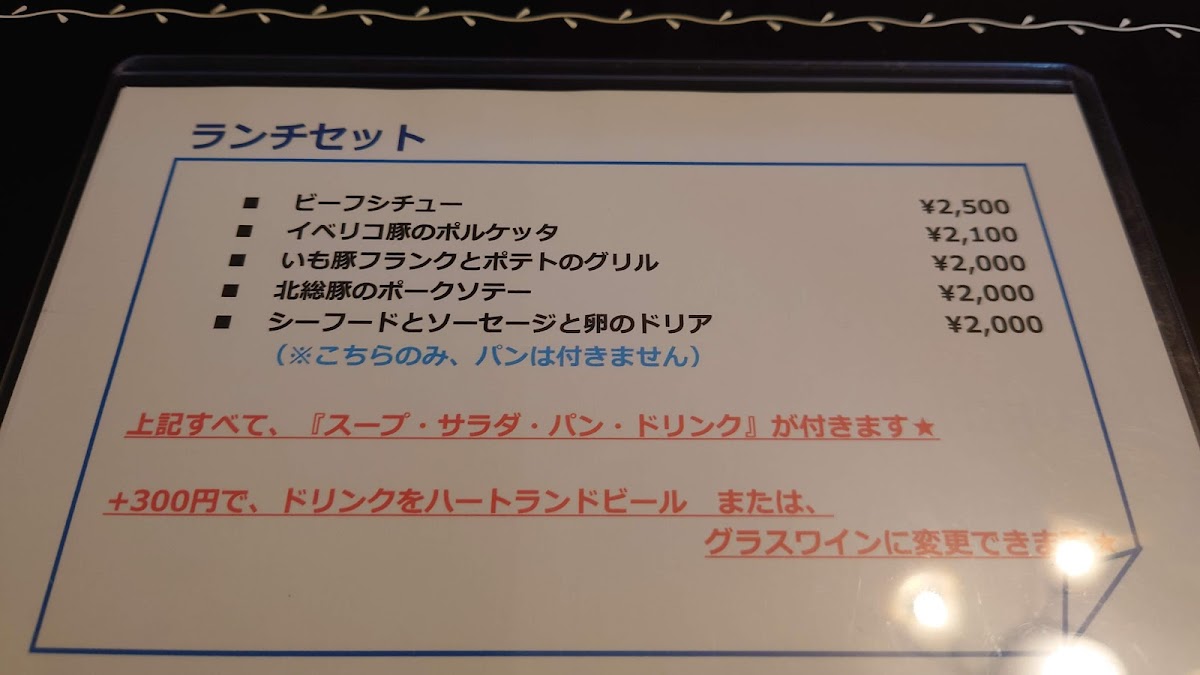 ランチセット
■ ビーフシチュー ¥2,500
■ イベリコ豚のポルケッタ ¥2,100
■ いも豚フランクとポテトのグリル ¥2,000
■ 北総豚のポークソテー ¥2,000
■ シーフードとソーセージと卵のドリア ¥2,000
（※こちらのみ、パンは付きません）
上記すべて、『スープ・サラダ・パン・ドリンク』が付きます★
+300円で、ドリンクをハートランドビール　または、
グラスワインに変更できま